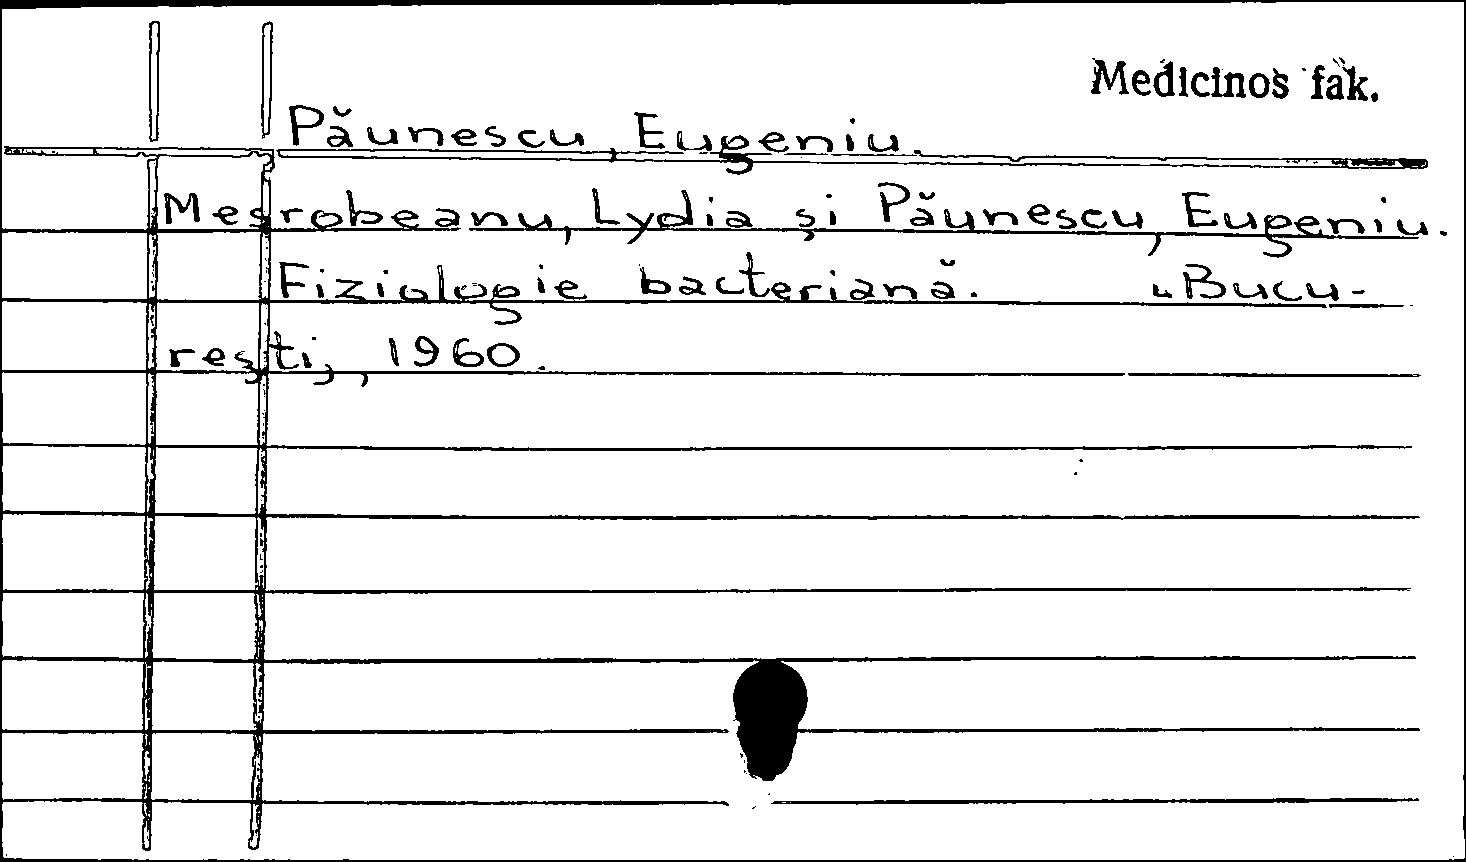 Medicinos fak.
Păunescu, Eugeniu.
Mesrobeanu, Lydia și Păunescu, Eugeniu.
Fiziologie bacteriană. „Bucu-
rești„, 1960.